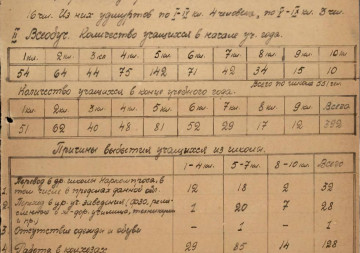 16 чел. Из них удмуртов по I-IV кл. 4 человека, по V-IX кл. 3 чел.
II Всеобуч. Количество учащихся в начале уч. года.
1 кл. 2 кл. 3 кл. 4 кл. 5 кл. 6 кл. 7 кл. 8 кл. 9 кл. 10 кл.
54 64 44 75 142 71 42 34 15 10
Всего по школе 551 чел.
Количество учащихся в конце учебного года.
1 кл. 2 кл. 3 кл. 4 кл. 5 кл. 6 кл. 7 кл. 8 кл. 9 кл. Всего
51 62 40 48 81 52 29 17 12 392
Причины выбытия учащихся из школы.
1-4 кл. 5-7 кл. 8-10 кл. Всего
1. Перевод в др. школы Наркомпроса, в том числе в пределах данной обл. 12 18 2 32
2. Переход в др. уч. заведения (ФЗО, ремесленного ж-дор. училища, техникумы и пр.) 1 20 7 28
3. Отсутствие одежды и обуви - 1 - 1
4. Работа в колхозах 29 85 14 128